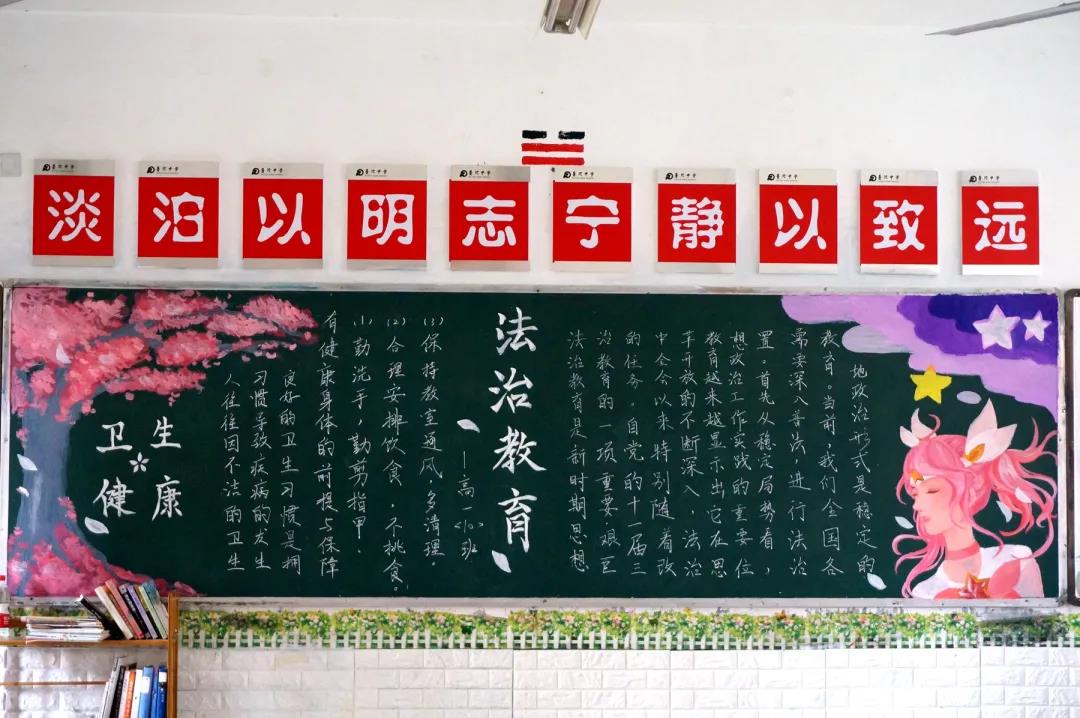 淡泊以明志宁静以致远
卫生
健康
人往往因不洁的卫生
习惯导致疾病的发生
良好的卫生习惯是拥
有健康身体的前提与保障
(1)勤洗手,勤剪指甲.
(2)合理安排饮食,不挑食.
(3)保持教室通风,多清理。
—高一<10>班
法治教育
法治教育是新时期思想
治教育的一项重要艰巨
的任务。自党的十一届三
中全会以来,特别随着改
革开放的不断深入,法治
教育越来越显示出它在思
想政治工作实践的重要位
置。首先从稳定局势看,
要深入普法进行法治
教育。当前,我们全国各
地政治形式是稳定的